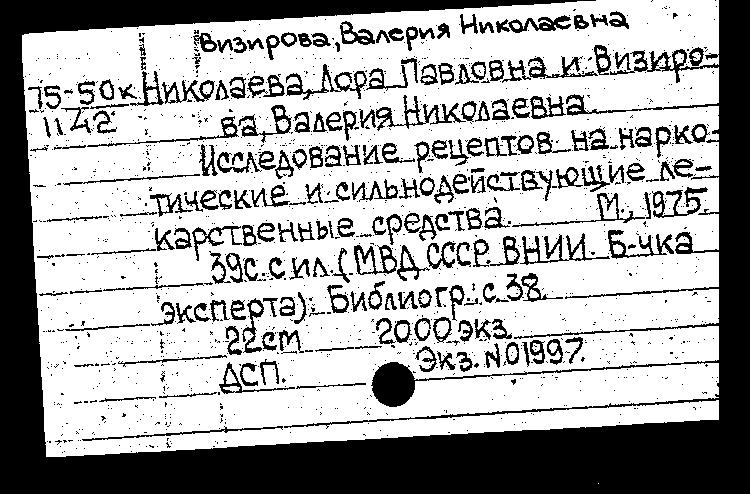 Визирова, Валерия Николаевна
75-50к Николаева, Лора Павловна и Визиро-
1142 ва, Валерия Николаевна.
Исследование рецептов на нарко-
тические и сильнодействующие ле-
карственные средства. М., 1975.
39с. с ил. (МВД СССР. ВНИИ. Б-чка
эксперта). Библиогр.: с. 38.
22см 2000 экз.
ДСП. Экз. №01997.